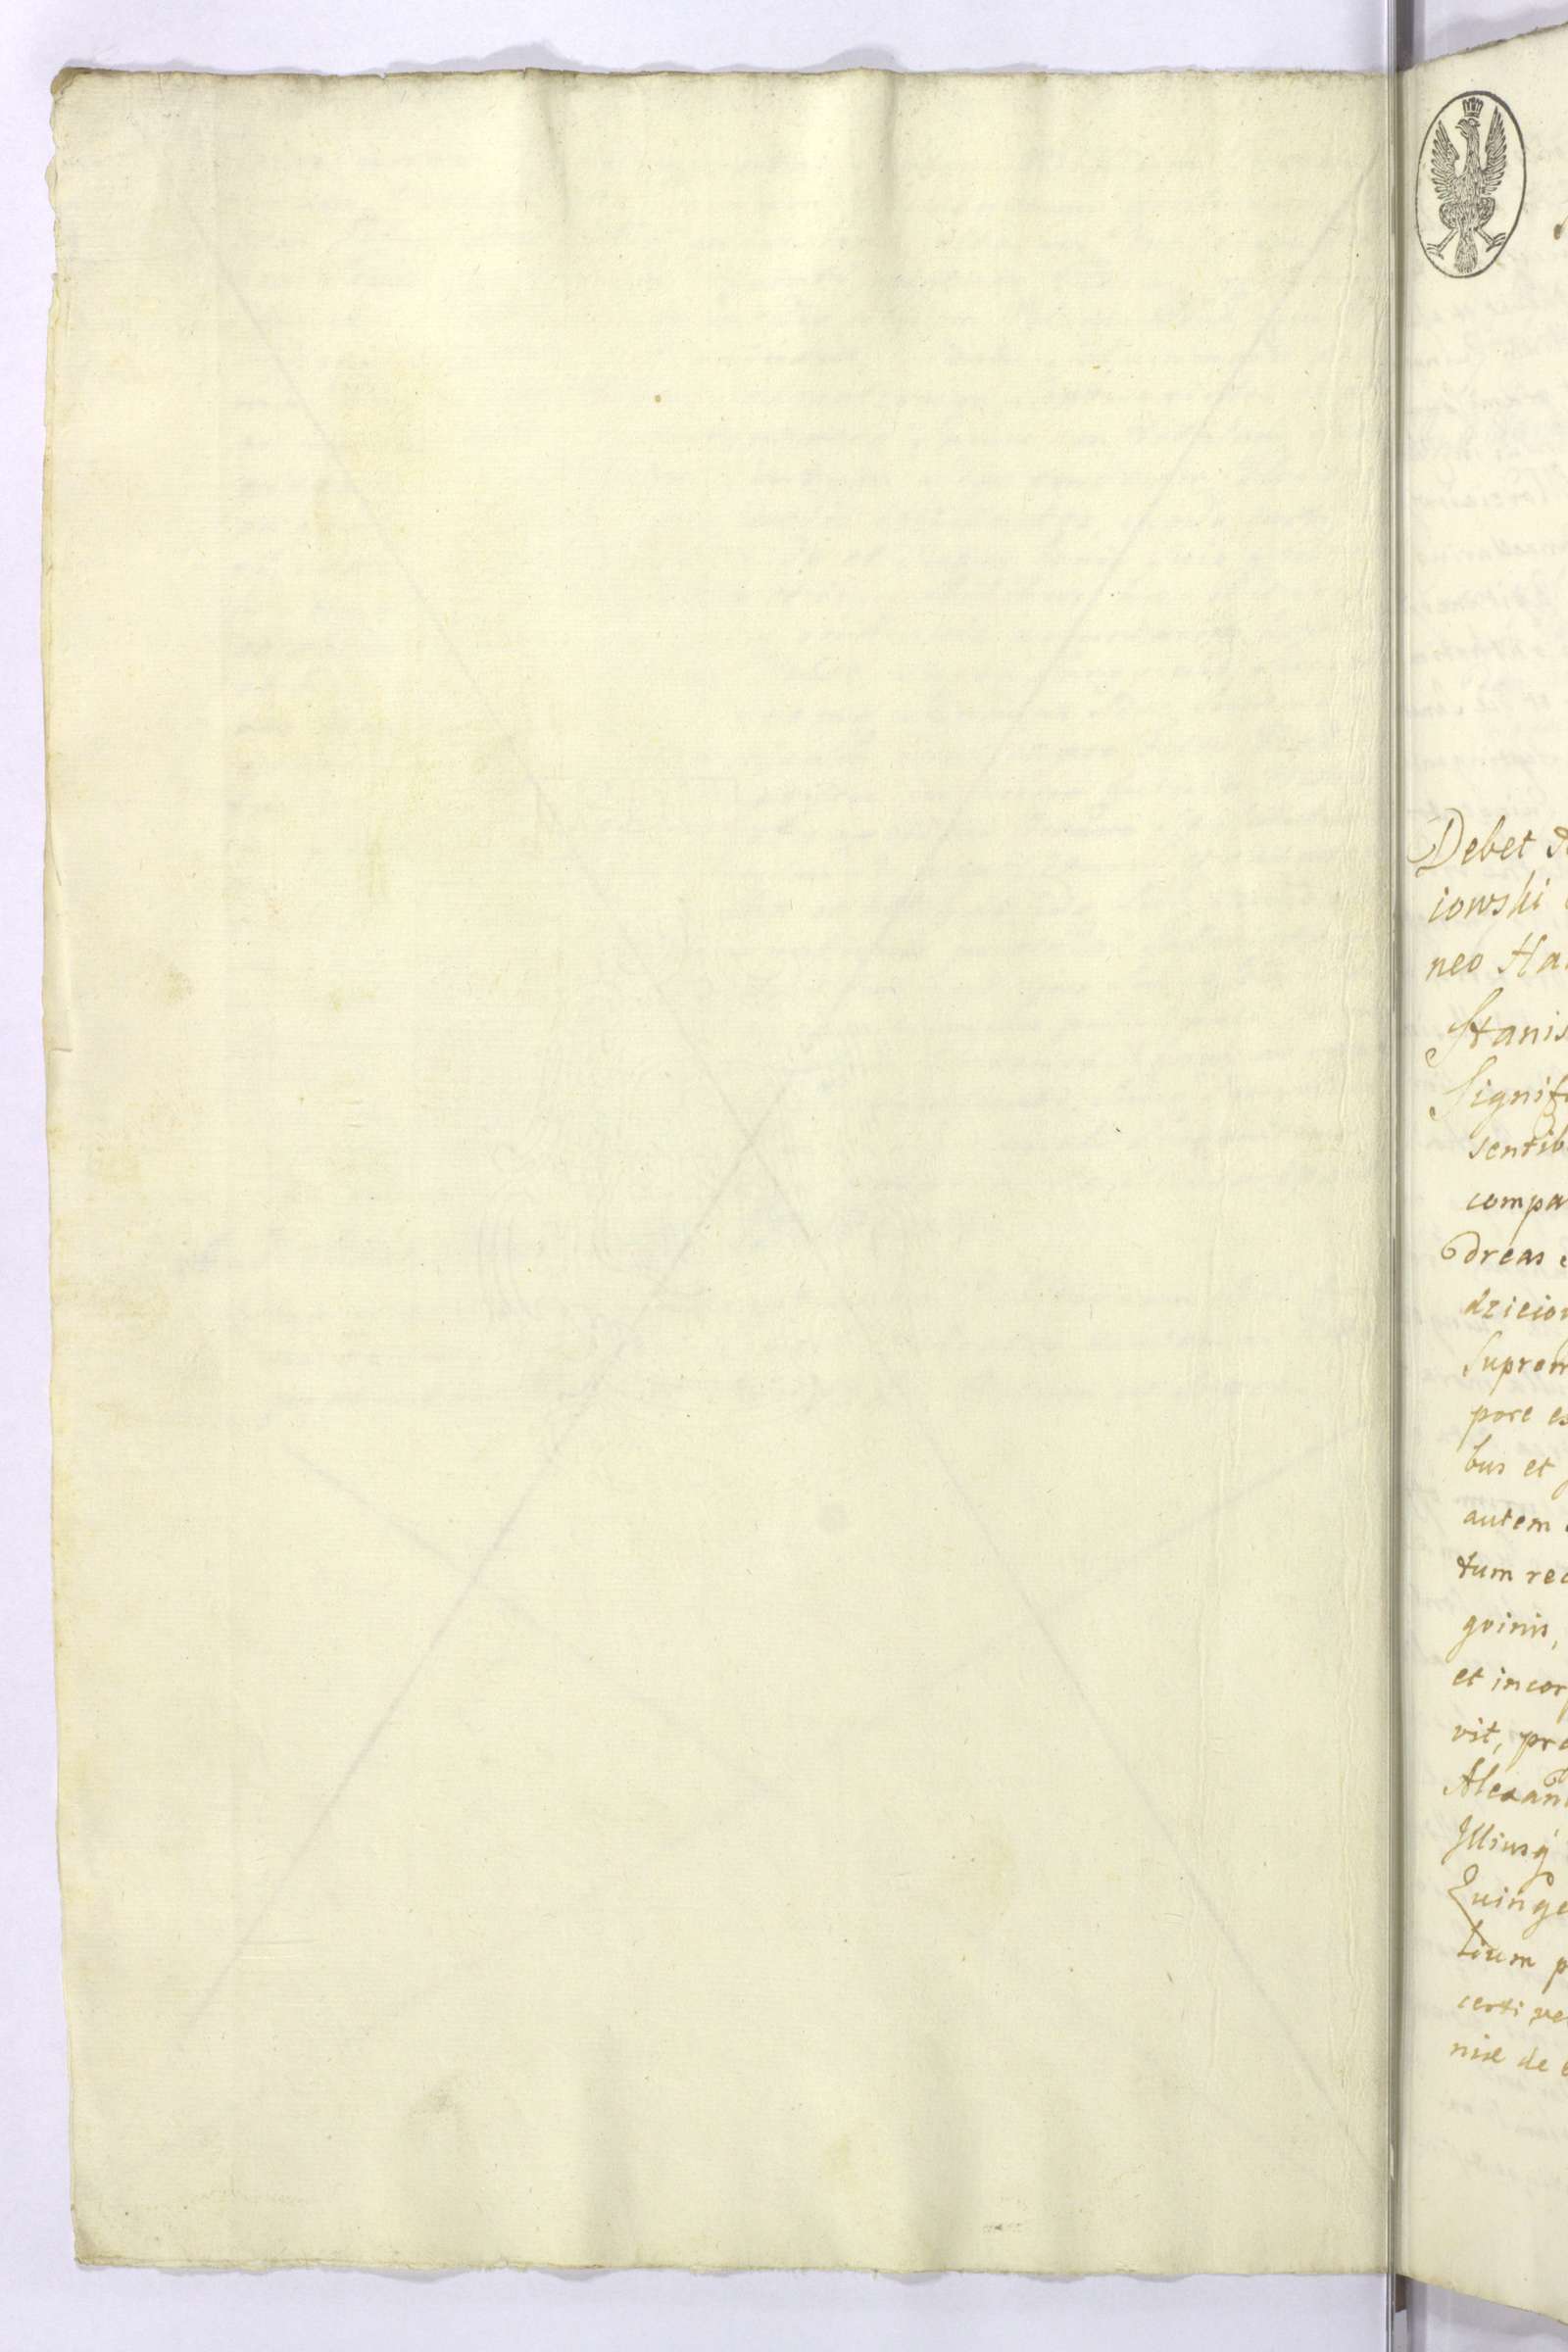 Debet A
iowski
neo Ha
Stanis
Signifi
sentib
compa
dreas
dzicio
Suprem
pore es
bus et
autem
tum rec
gvinis,
et incor
vit, pro
Alexan
Illiusq
Quinge
tium p
certi ve
niæ de